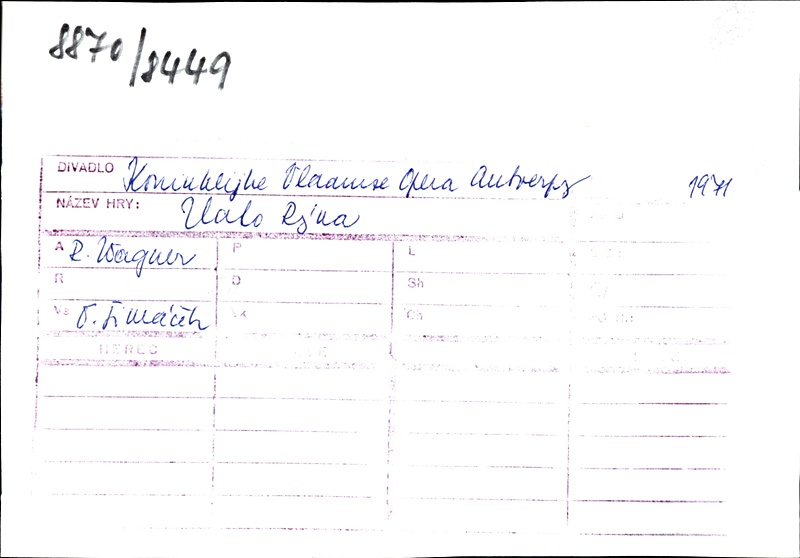 8870/8449
DIVADLO Koninklijke Vlaamse Opera Antverpy 1971
NÁZEV HRY: Zlato Rýna
A R. Wagner P L
R D Sh
Vs O. Šimáček Vk Ch
HEREC